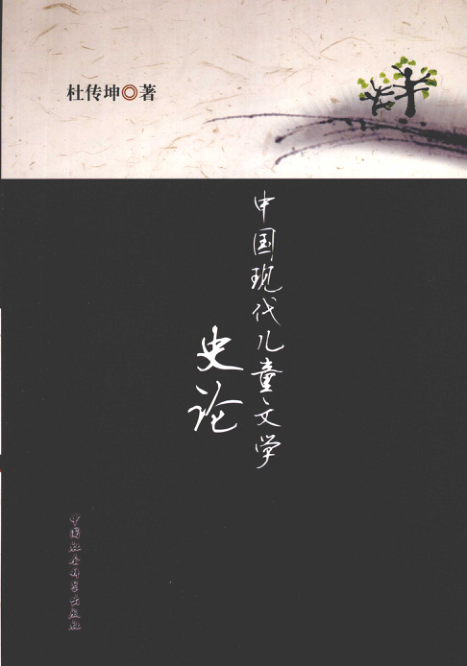 杜传坤◎著
中国现代儿童文学
史论
中国社会科学出版社